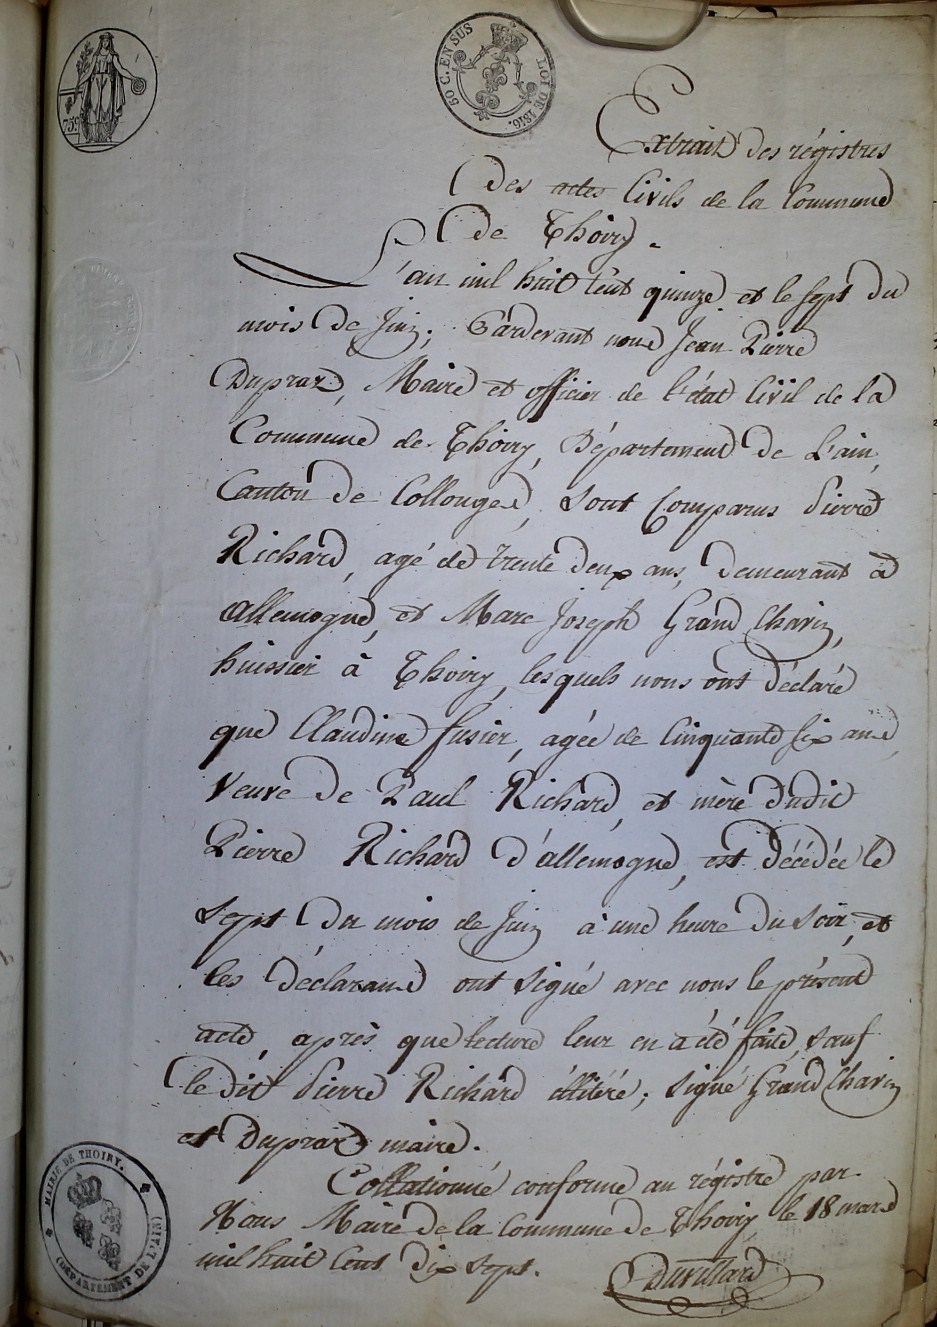 75c
50 C. EN SUS
LOI DE 1816.
Extrait des régistres
des actes Civils de la Commune
de Thoiry.
L'an mil huit Cent quinze et le sept du
mois de Juin; Pardevant nous Jean Pierre
Dupraz, Maire et officier de l'état Civil de la
Commune de Thoiry, Département de L'ain,
Canton de Collonges, sont Comparus Pierre
Richard, agé de trente deux ans, demeurant à
allemogne, et Marc Joseph Grand Chavin,
huissier à Thoiry, lesquels nous ont déclaré
que Claudine fusier, agée de Cinquante six ans,
Veuve de Paul Richard, et mère dudit
Pierre Richard d'allemogne, est décédée le
sept du mois de Juin à une heure du soir, et
les déclarans ont signé avec nous le présent
acte, après que lecture leur en a été faite, sauf
le dit Pierre Richard illitéré; signé Grand Chavin
et Dupraz maire.
Collationné conforme au régistre par
Nous Maire de la Commune de Thoiry le 18 mars
mil huit Cent dix sept.
MAIRIE DE THOIRY.
(DÉPARTEMENT DE L'AIN)